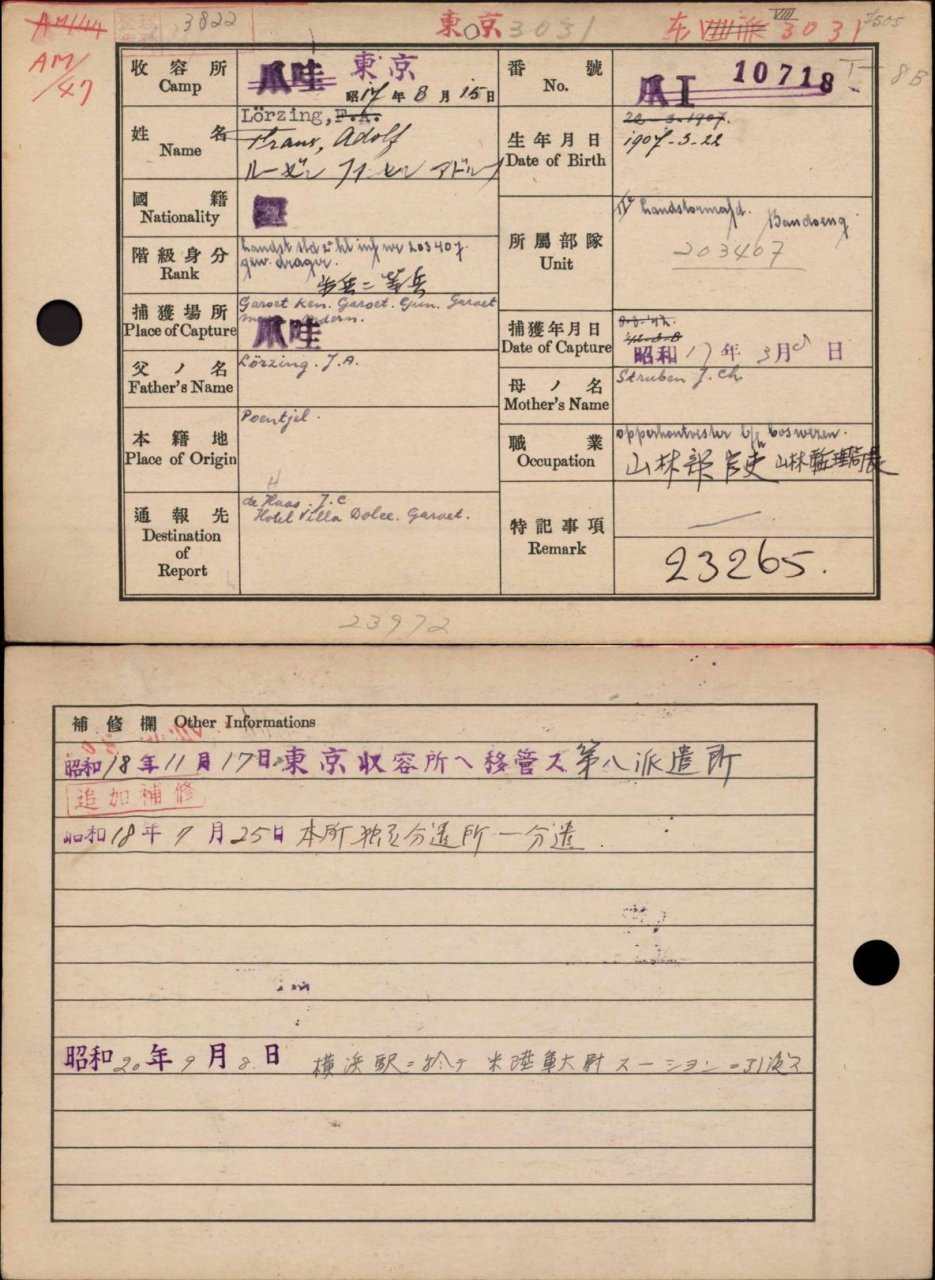 AM/44
3822
東京 3031
3031
7505
AM/47
收容所 Camp
爪哇 東京
昭17年8月15日
番號 No.
爪I 10718
I 8B
姓名 Name
Lörzing, F.A.
Frans, Adolf
生年月日 Date of Birth
22-3-1907.
1907-3-22
國籍 Nationality
階級身分 Rank
203407.
步兵二等兵
所屬部隊 Unit
Bandoeng
203407
捕獲場所 Place of Capture
Garoet Ken. Garoet. Garoet
爪哇
捕獲年月日 Date of Capture
昭和17年3月8日
父ノ名 Father's Name
Lörzing. J.A.
母ノ名 Mother's Name
Struben J. Ch.
本籍地 Place of Origin
Poentjel.
職業 Occupation
opperhoutvester b/h boswezen.
山林部官吏 山林監理局長
通報先 Destination of Report
H
de Haas. J.C
Hotel Villa Dolce. Garoet.
特記事項 Remark
23265.
23972
補修欄 Other Informations
昭和18年11月17日東京収容所ヘ移管ス 第八派遣所
追加補修
昭和18年9月25日 本所 分遣所 分遣
昭和20年9月8日 横浜駅ニ於テ米陸軍大尉スーションニ引渡ス